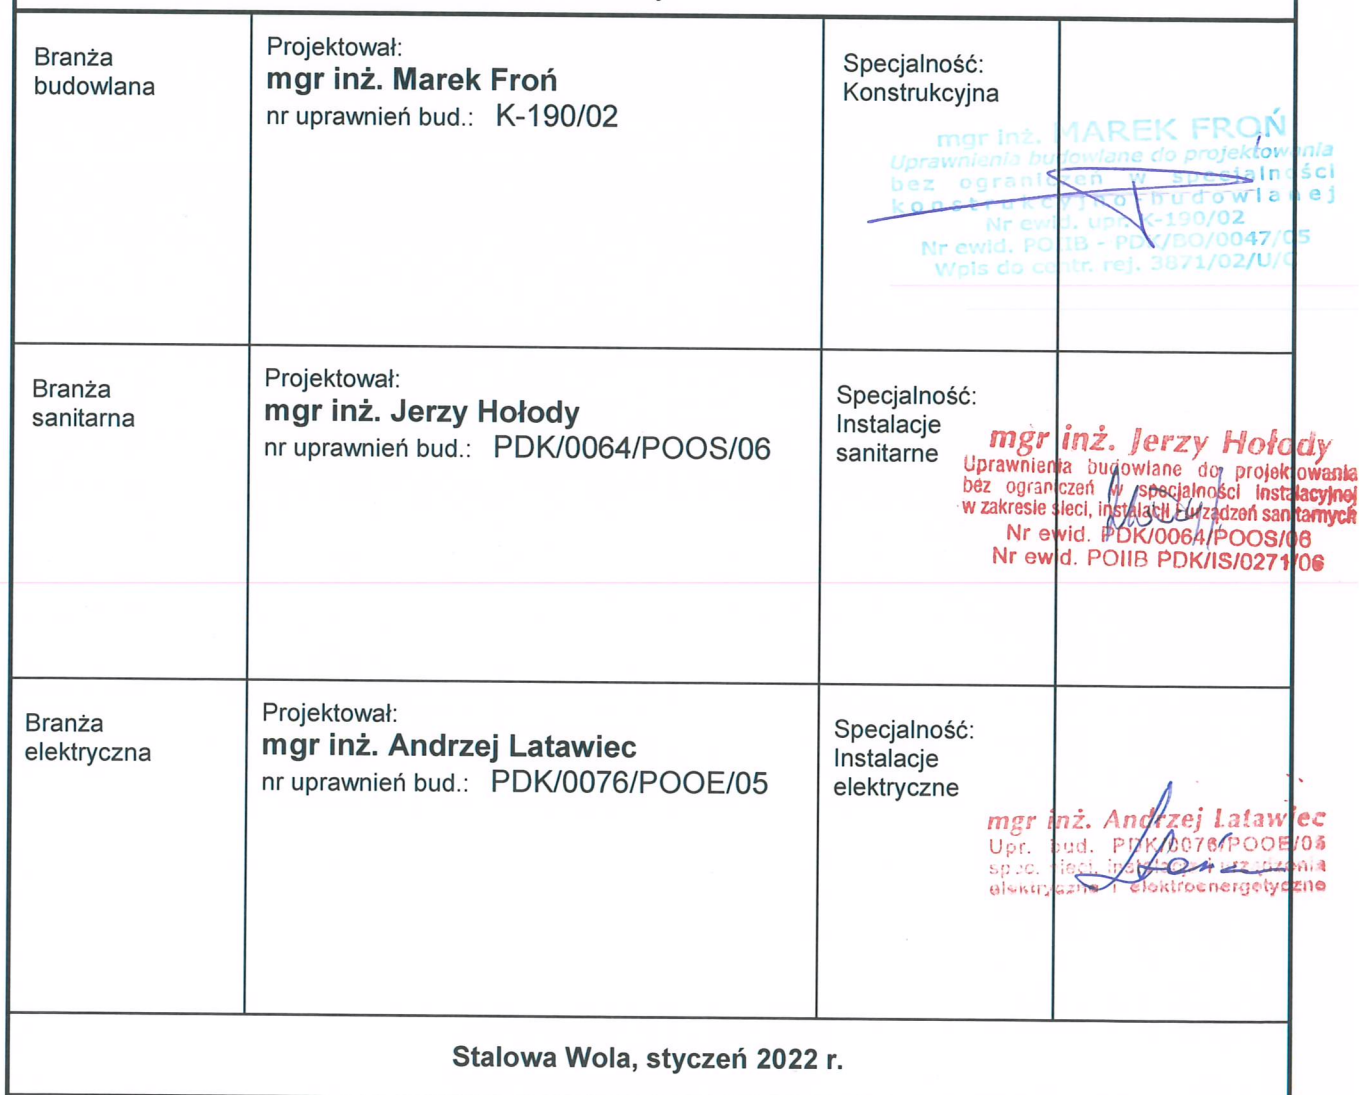 Branża
budowlana
Projektował:
mgr inż. Marek Froń
nr uprawnień bud.: K-190/02
Specjalność:
Konstrukcyjna
mgr inż. MAREK FROŃ
Uprawnienia budowlane do projektowania
bez ograniczeń w specjalności
konstrukcyjno-budowlanej
Nr ewid. upr. K-190/02
Nr ewid. POIIB - PDK/BO/0047/05
Wpis do centr. rej. 3871/02/U/C
Branża
sanitarna
Projektował:
mgr inż. Jerzy Hołody
nr uprawnień bud.: PDK/0064/POOS/06
Specjalność:
Instalacje
sanitarne
mgr inż. Jerzy Hołody
Uprawnienia budowlane do projektowania
bez ograniczeń w specjalności instalacyjnej
w zakresie sieci, instalacji i urządzeń sanitarnych
Nr ewid. PDK/0064/POOS/06
Nr ewid. POIIB PDK/IS/0271/06
Branża
elektryczna
Projektował:
mgr inż. Andrzej Latawiec
nr uprawnień bud.: PDK/0076/POOE/05
Specjalność:
Instalacje
elektryczne
mgr inż. Andrzej Latawiec
Upr. bud. PDK/0076/POOE/05
spec. sieci, instalacje i urządzenia
elektryczne i elektroenergetyczne
Stalowa Wola, styczeń 2022 r.